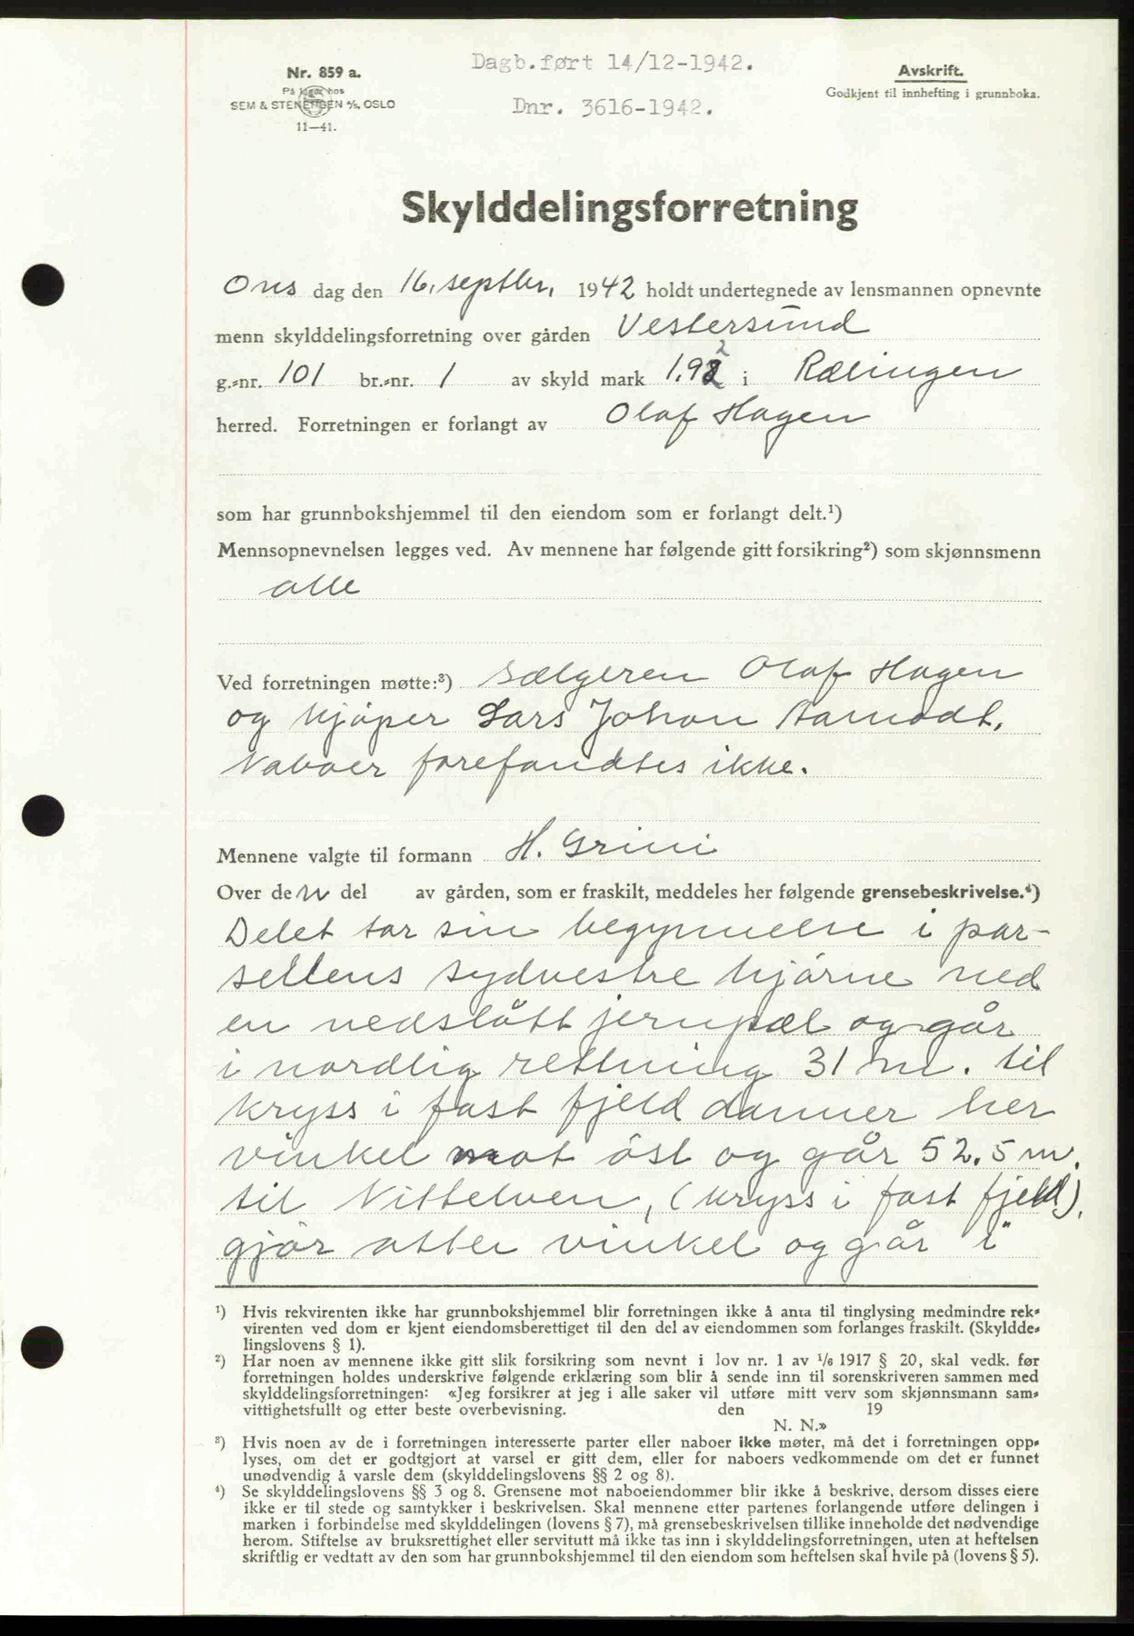 Dagb.ført 14/12-1942.
Dnr. 3616-1942.
Nr. 859 a.
På lager hos
SEM & STENERSEN A/S, OSLO
11—41.
Avskrift.
Godkjent til innhefting i grunnboka.
Skylddelingsforretning
Ons dag den 16. septbr. 1942 holdt undertegnede av lensmannen opnevnte
menn skylddelingsforretning over gården Vestersund
g.-nr. 101 br.-nr. 1 av skyld mark 1.92 i Rælingen
herred. Forretningen er forlangt av Olaf Hagen
som har grunnbokshjemmel til den eiendom som er forlangt delt.¹)
Mennsopnevnelsen legges ved. Av mennene har følgende gitt forsikring²) som skjønnsmenn
alle
Ved forretningen møtte:³) Sælgeren Olaf Hagen
og kjøper Lars Johan Aamodt.
Naboer forefandtes ikke.
Mennene valgte til formann H. Grini
Over den del av gården, som er fraskilt, meddeles her følgende grensebeskrivelse.⁴)
Delet tar sin begynnelse i par-
sellens sydvestre hjørne ved
en nedslått jernpæl og går
i nordlig rettning 31 m. til
kryss i fast fjeld danner her
vinkel mot øst og går 52.5 m.
til Nittelven, (kryss i fast fjeld),
gjør atter vinkel og går i
¹) Hvis rekvirenten ikke har grunnbokshjemmel blir forretningen ikke å anta til tinglysing medmindre rek-
virenten ved dom er kjent eiendomsberettiget til den del av eiendommen som forlanges fraskilt. (Skyldde-
lingslovens § 1).
²) Har noen av mennene ikke gitt slik forsikring som nevnt i lov nr. 1 av 1/6 1917 § 20, skal vedk. før
forretningen holdes underskrive følgende erklæring som blir å sende inn til sorenskriveren sammen med
skylddelingsforretningen: «Jeg forsikrer at jeg i alle saker vil utføre mitt verv som skjønnsmann sam-
vittighetsfullt og etter beste overbevisning. den 19
N. N.»
³) Hvis noen av de i forretningen interesserte parter eller naboer ikke møter, må det i forretningen opp-
lyses, om det er godtgjort at varsel er gitt dem, eller for naboers vedkommende om det er funnet
unødvendig å varsle dem (skylddelingslovens §§ 2 og 8).
⁴) Se skylddelingslovens §§ 3 og 8. Grensene mot naboeiendommer blir ikke å beskrive, dersom disses eiere
ikke er til stede og samtykker i beskrivelsen. Skal mennene etter partenes forlangende utføre delingen i
marken i forbindelse med skylddelingen (lovens § 7), må grensebeskrivelsen tillike inneholde det nødvendige
herom. Stiftelse av bruksrettighet eller servitutt må ikke tas inn i skylddelingsforretningen, uten at heftelsen
skriftlig er vedtatt av den som har grunnbokshjemmel til den eiendom som heftelsen skal hvile på (lovens § 5).